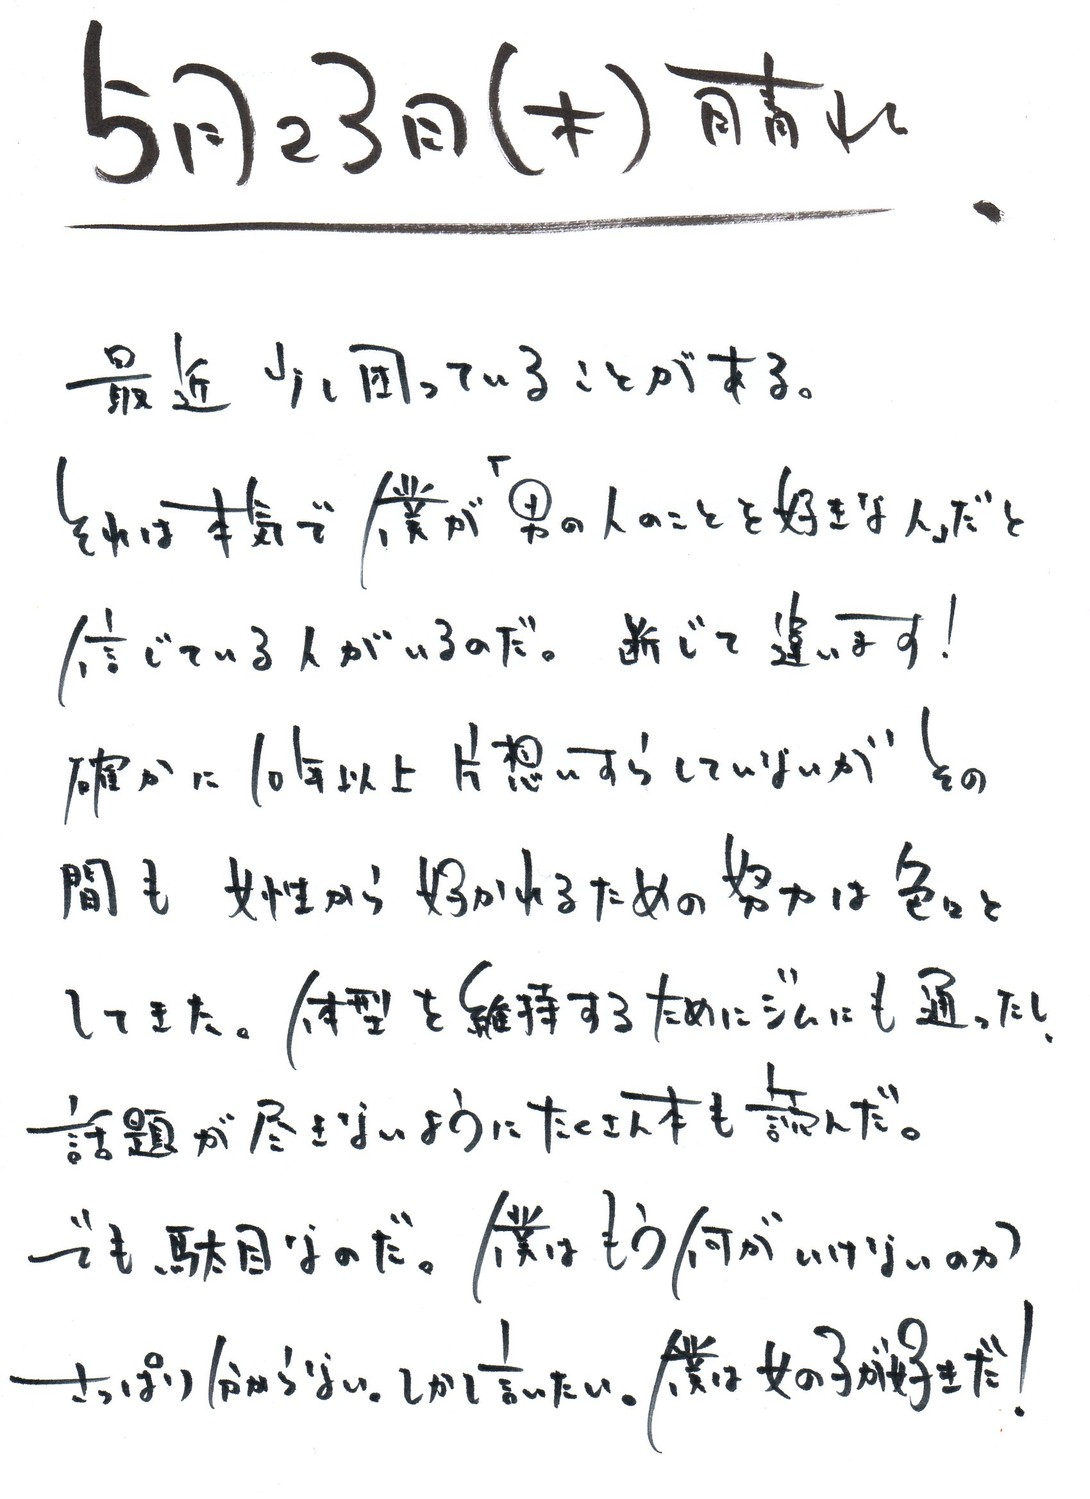 5月23日(木)晴れ
最近 少し困っていることがある。
それは本気で僕が「男の人のことを好きな人」だと
信じている人がいるのだ。 断じて違います!
確かに10年以上片想いすらしていないが その
間も 女性から好かれるための努力は色々と
してきた。体型を維持するためにジムにも通ったし、
話題が尽きないようにたくさん本も読んだ。
でも駄目なのだ。僕はもう何がいけないのか
さっぱり分からない。しかし言いたい。僕は女の子が好きだ!